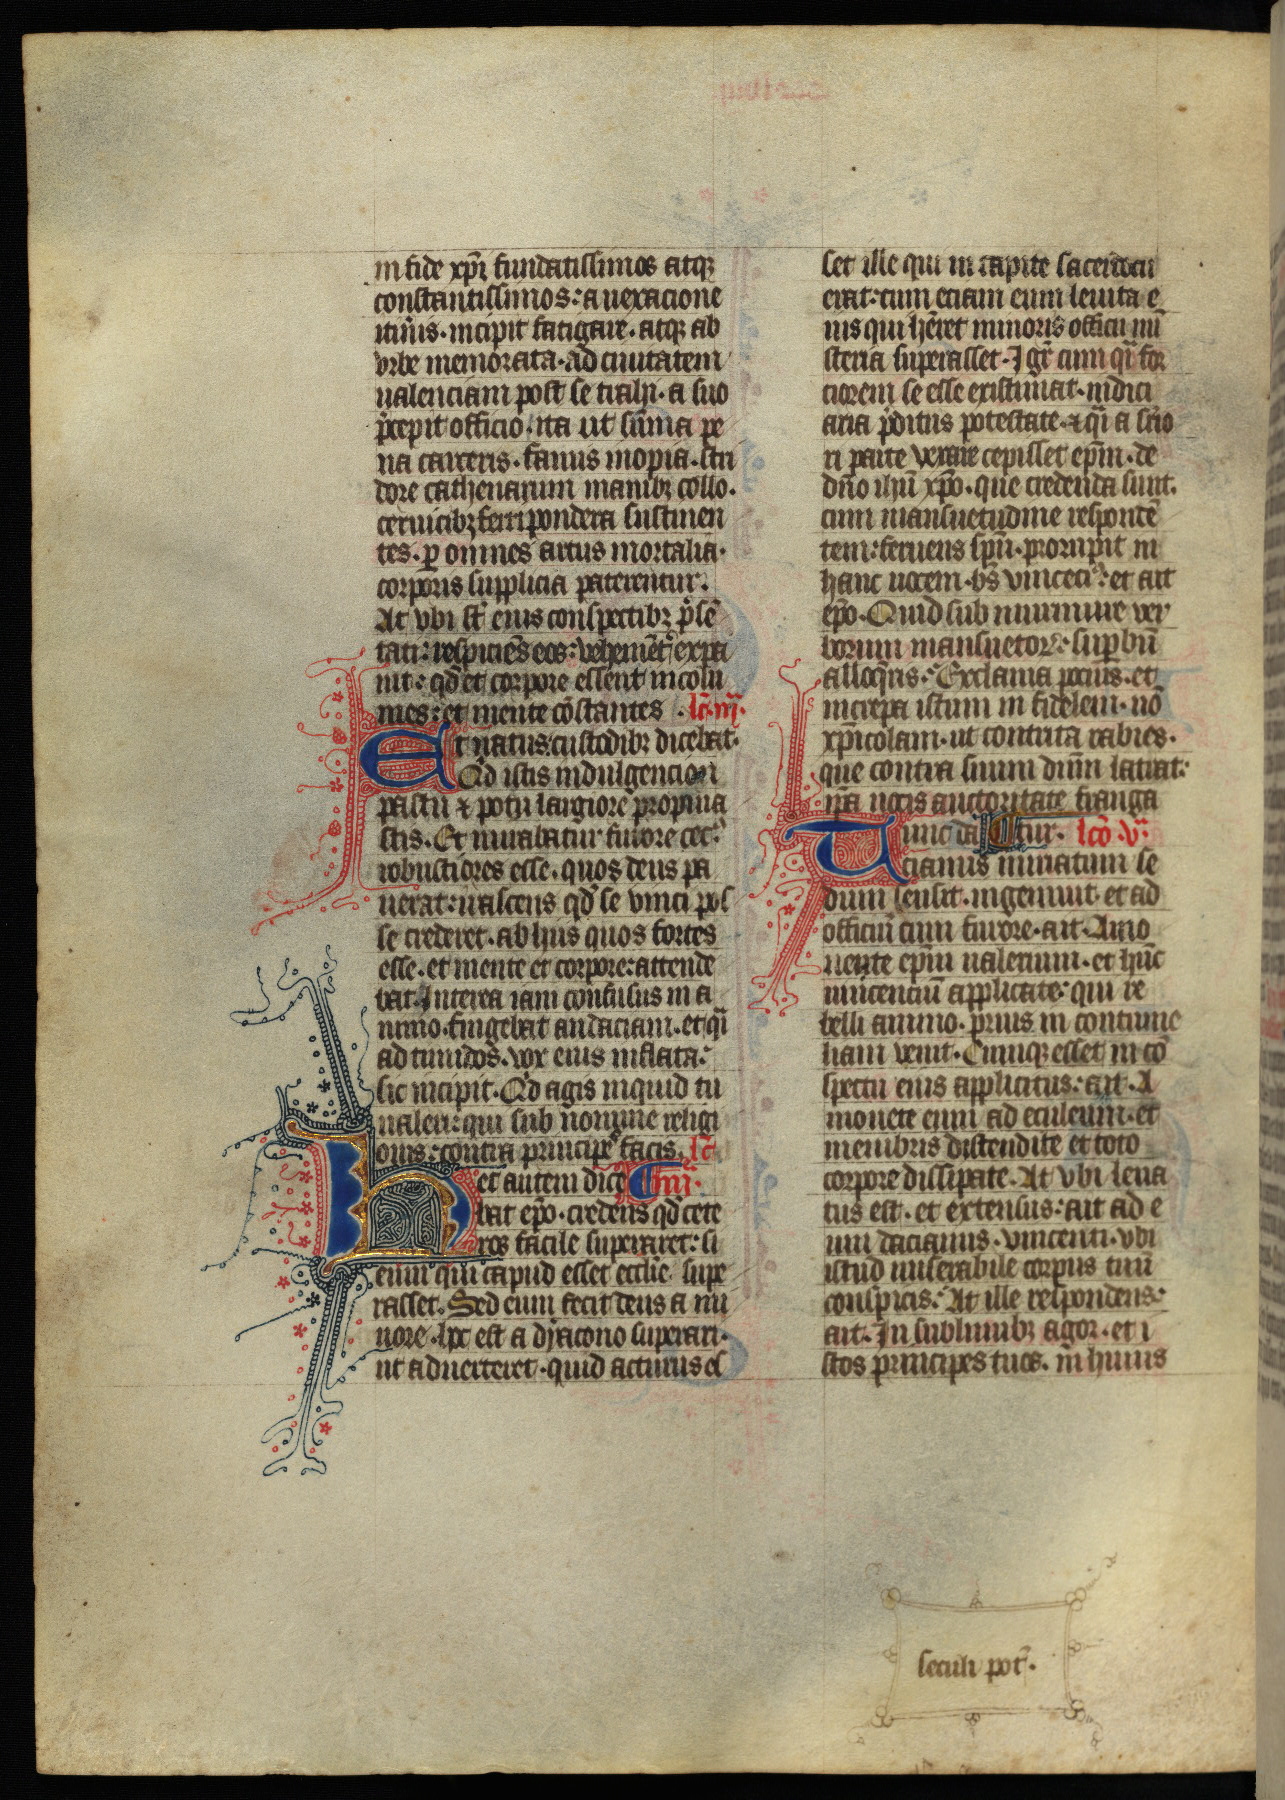 in fide xp̄i fundatissimos atqꝫ
constantissimos: a uexacione
itin̄is. incipit fatigare. atqꝫ ab
vrbe memorata. ad ciuitatem
ualenciam post se trahi. a suo
p̄cepit officio. ita ut sūma pe
na carceris. famis inopia. stri
dore cathenarum manibꝫ collo.
ceruicibꝫ ferri pondera sustinen
tes. ꝑ omnes artus mortalia.
corporis supplicia paterentur.
At vbi st̄ eius conspectibꝫ p̄sē
tati: respiciēs eos: vehemēt̉ expa
uit: qd̄ et corpore essent incolu
mes: et mente cōstantes. lc̄. iij.
Et natus custodibꝫ dicebat.
Qd̄ istis indulgencion
pastu ⁊ potu largiorē propina
stis. Et mirabatur furore cec̉:
robustiores esse. quos deus pa
uerat: nascens qd̄ se vinci pos
se crederet. ab hiis quos fortes
esse. et mente et corpore: attende
bat. Interea iam confusus in a
nimo. fingebat audaciam. et qi̅
ad timidos. vox eius inflata:
sic incipit. Qd̄ agis inquid tu
ualeri: qui sub nomine religi
onis: contra principē facis. lc̄
Hec autem dice iiij.
bat ep̄o. credens qd̄ cete
ros facile superaret: si
eum qui capud esset eccl̄ie supe
rasset. Sed eum fecit deus a mi
nore. hoc est a dyacono superari.
ut aduerteret. quid acturus es
set ille qui in capite sacerdocii
erat: cum eciam eum leuita e
ius qui hēret minoris officii mi
steria superasset. Igr̄ cum qi̅ for
ciorem se esse existimat. iudici
aria p̄ditus potestate. ⁊ qi̅ a sūo
ri parte vexare cepisset ep̄m. de
dn̄o ihū xp̄o. que credenda sunt.
cum mansuetudine respondē
tem: feruens sp̄u. prorupit in
hanc uocem. bs̄ vincecỉ: et ait
ep̄o. Quid sub murmure ver
borum mansuetorꝝ: suꝑbū
alloq̄ris: Exclama pocius. et
increpa istum in fidelem. nō
xp̄icolam. ut contrita rabies.
que contra suum dn̄m latrat:
ip̄a uocis auctoritate franga
Tunc da tur. lcō. v.
cianus miratum se
dum sensit. ingemuit. et ad
officiū cum furore. ait. Amo
uente ep̄m ualerium. et hūc
uincenciū applicate: qui re
belli animo. prius in contume
liam venit. Cumqꝫ esset in cō
spectu eius applicitus: ait. A
mouete eum ad eculeum. et
membris distendite et toto
corpore dissipate. At vbi leua
tus est. et extensus: ait ad e
um dacianus. vincenti. vbi
istud miserabile corpus tuū
conspicis: At ille respondens:
ait. In sublimibꝫ agor. et i
stos principes tuos. in̄ huius
seculi pot̄.